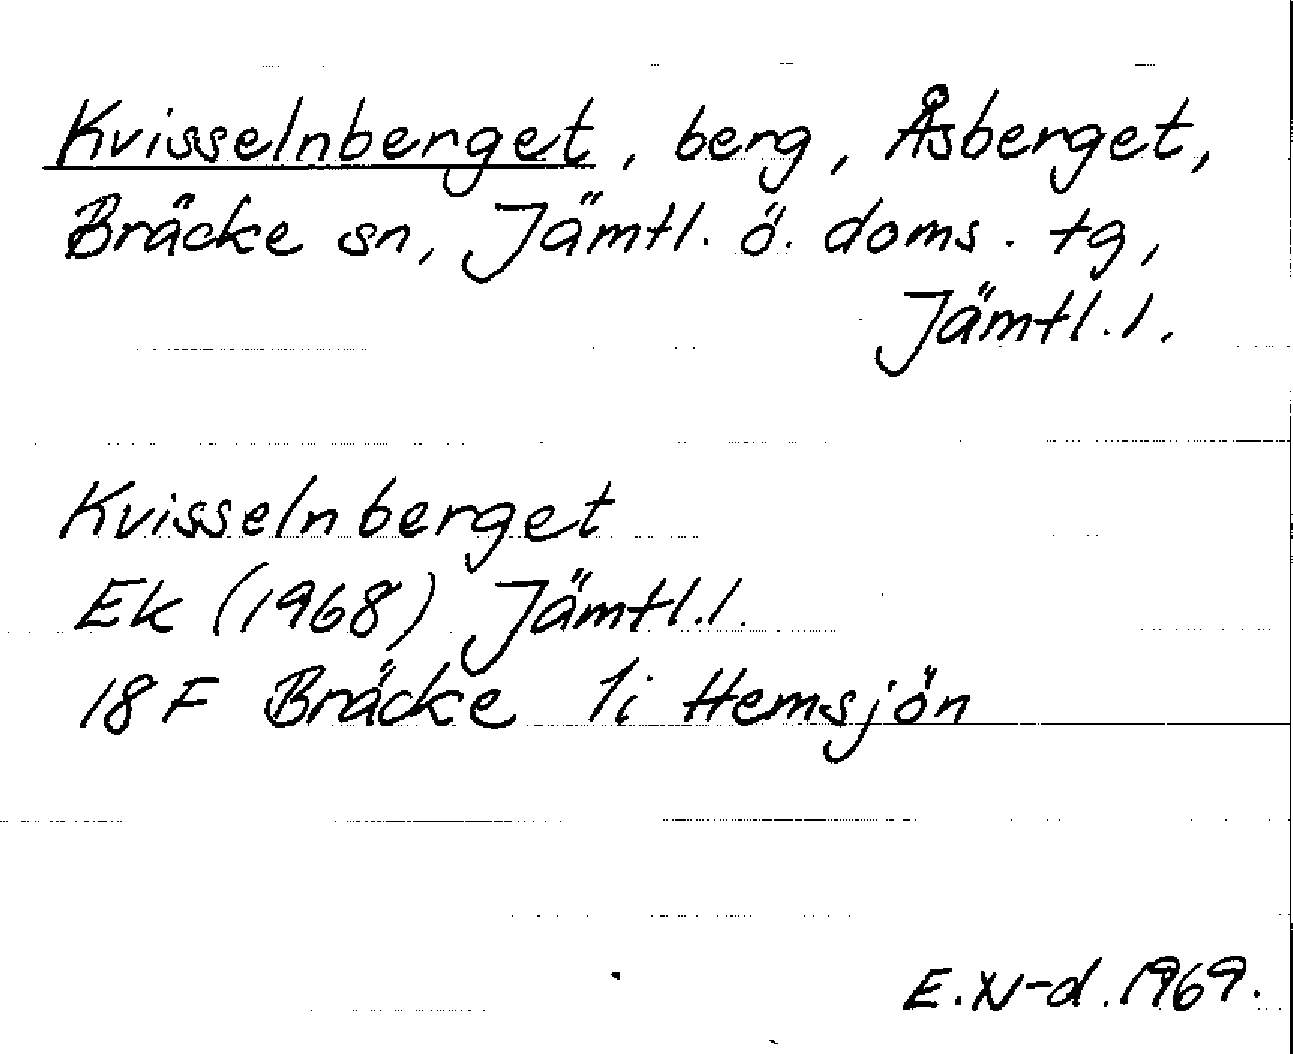 Kvisselnberget, berg, Åsberget,
Bräcke sn, Jämtl. ö. doms. tg,
Jämtl. l.
Kvisselnberget
Ek (1968) Jämtl. l.
18 F Bräcke 1i Hemsjön
E. N-d. 1969.